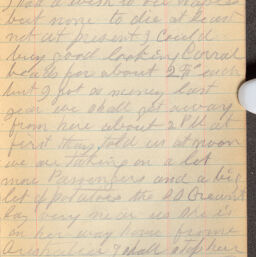 I had a wish to see
but none to die at least
not at present I could
buy good looking Corral
beads for about 2 50 each
but I got so many last
year we shall get away
from here about 2 PM at
first they told us at noon
we are taking on a lot
more Passengers and a big
lot of potatoes the SS
lay very near us she is
on her way home frome
Australia I shall stop here